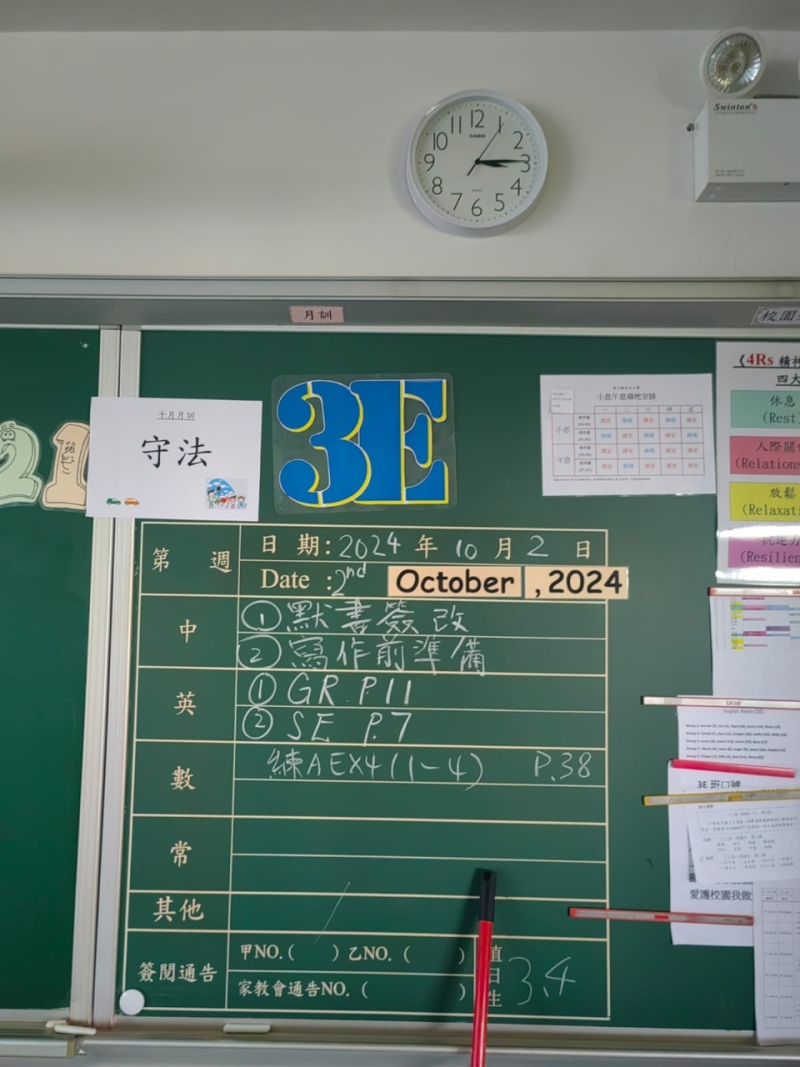 12
1
2
3
4
5
6
7
8
9
10
11
CASIO
Swinton's
月訓
校園
十月月訓
守法
3E
21
小息午息場地安排
一 二 三 四 五
小息
午息
《4Rs 精神
四大
休息
(Rest
人際關
(Relations
放鬆
(Relaxati
抗逆力
(Resilien
第 週
日 期:2024 年 10 月 2 日
Date :2nd October ,2024
中
①默書簽改
②寫作前準備
英
①GR P.11
②SE P.7
數
練AEX4(1-4) P.38
常
其他
簽閱通告
甲NO.( )乙NO.( )
家教會通告NO.( )
值日生
3,4
3E 班口號
愛護校園我做